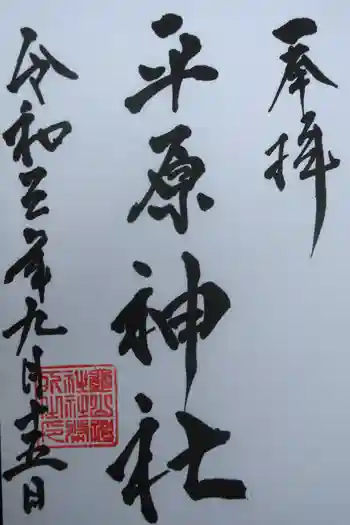 奉拝
平原神社
令和三年九月十五日